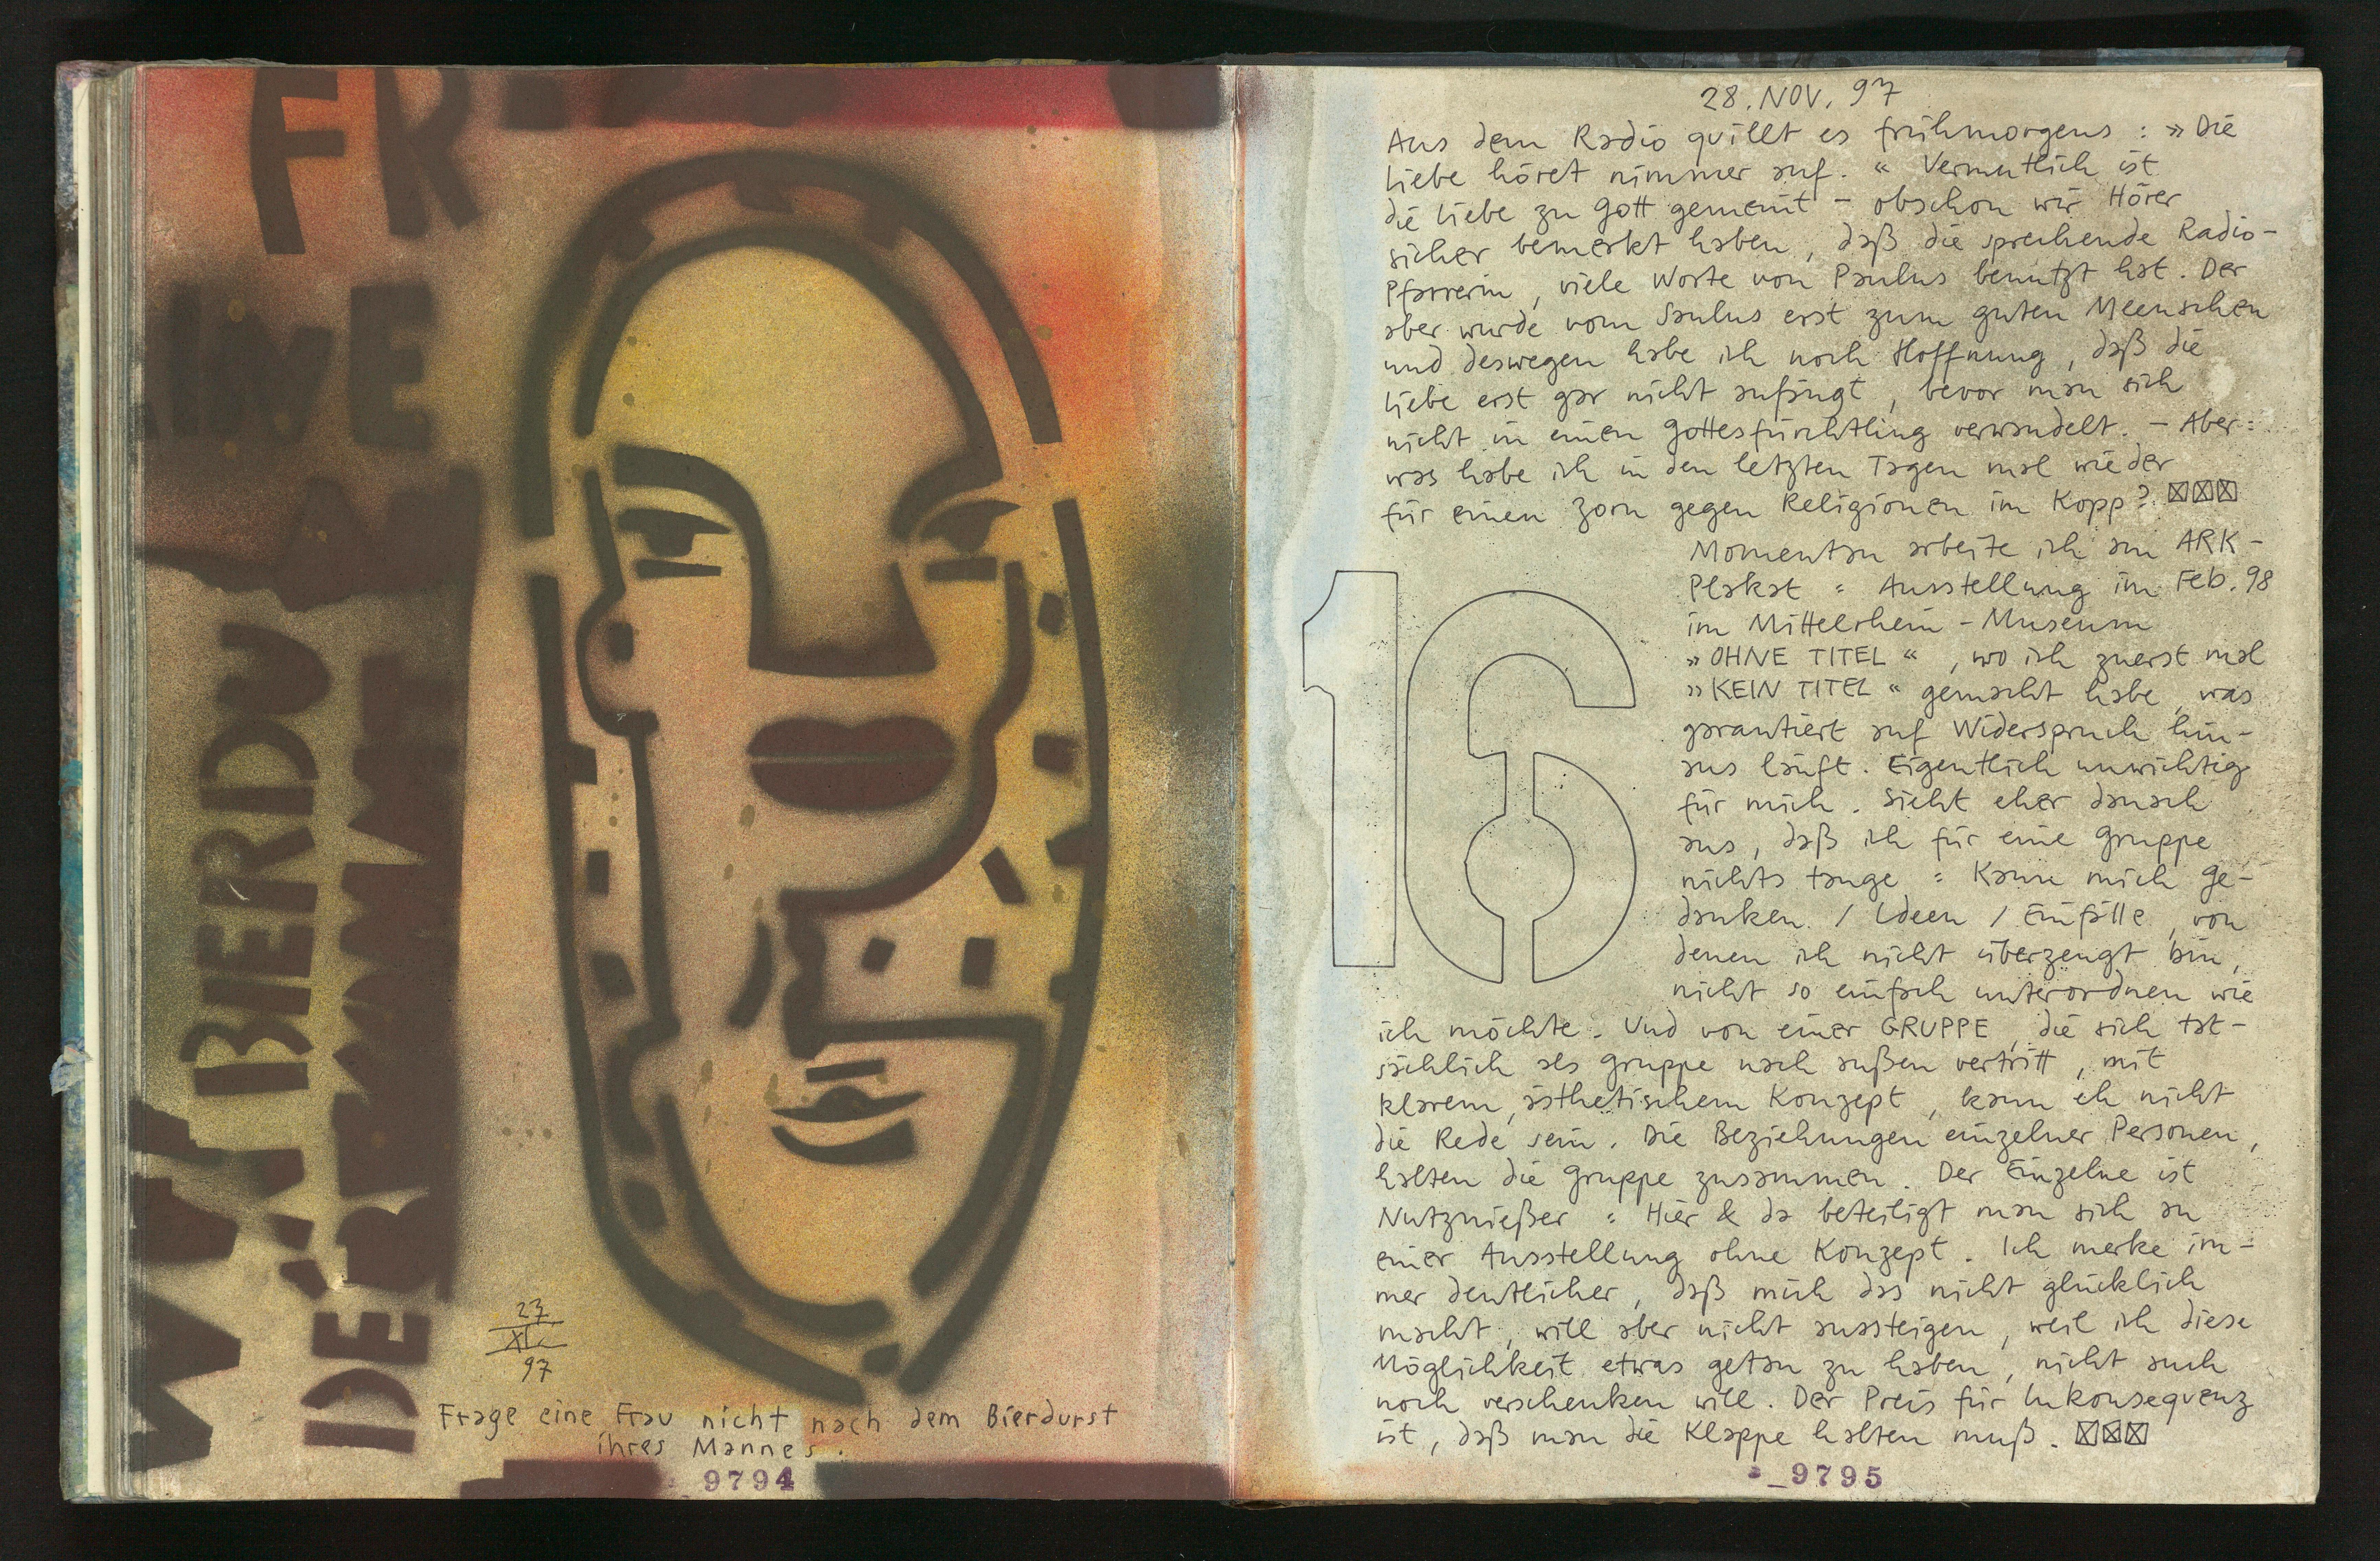 FR
WE
BIERDU
DER
IDE
27
XI.
97
Frage eine Frau nicht nach dem Bierdurst
ihres Mannes.
9794
28. NOV. 97
Aus dem Radio quillt es frühmorgens : »Die
Liebe höret nimmer auf.« Vermutlich ist
die Liebe zu Gott gemeint – obschon wir Hörer
sicher bemerkt haben, daß die sprechende Radio-
Pfarrerin, viele Worte von Paulus benutzt hat. Der
aber wurde vom Saulus erst zum guten Meenschen
und deswegen habe ich noch Hoffnung, daß die
Liebe erst gar nicht anfängt, bevor man sich
nicht in einen Gottesfürchtling verwandelt. – Aber:
was habe ich in den letzten Tagen mal wieder
für einen Zorn gegen Religionen im Kopp? ☒☒☒
16
Momentan arbeite ich am ARK-
Plakat = Ausstellung im Feb. 98
im Mittelrhein-Museum
»OHNE TITEL«, wo ich zuerst mal
»KEIN TITEL« gemacht habe, was
garantiert auf Widerspruch hin-
aus läuft. Eigentlich unwichtig
für mich. Sieht eher danach
aus, daß ich für eine Gruppe
nichts tauge = Kann mich Ge-
danken / Ideen / Einfälle, von
denen ich nicht überzeugt bin,
nicht so einfach unterordnen wie
ich möchte. Und von einer GRUPPE, die sich tat-
sächlich als Gruppe nach außen vertritt, mit
klarem, ästhetischem Konzept, kann eh nicht
die Rede sein. Die Beziehungen einzelner Personen,
halten die Gruppe zusammen. Der Einzelne ist
Nutznießer = Hier & da beteiligt man sich an
einer Ausstellung ohne Konzept. Ich merke im-
mer deutlicher, daß mich das nicht glücklich
macht, will aber nicht aussteigen, weil ich diese
Möglichkeit etwas getan zu haben, nicht auch
noch verschenken will. Der Preis für Inkonsequenz
ist, daß man die Klappe halten muß. ☒☒☒
9795